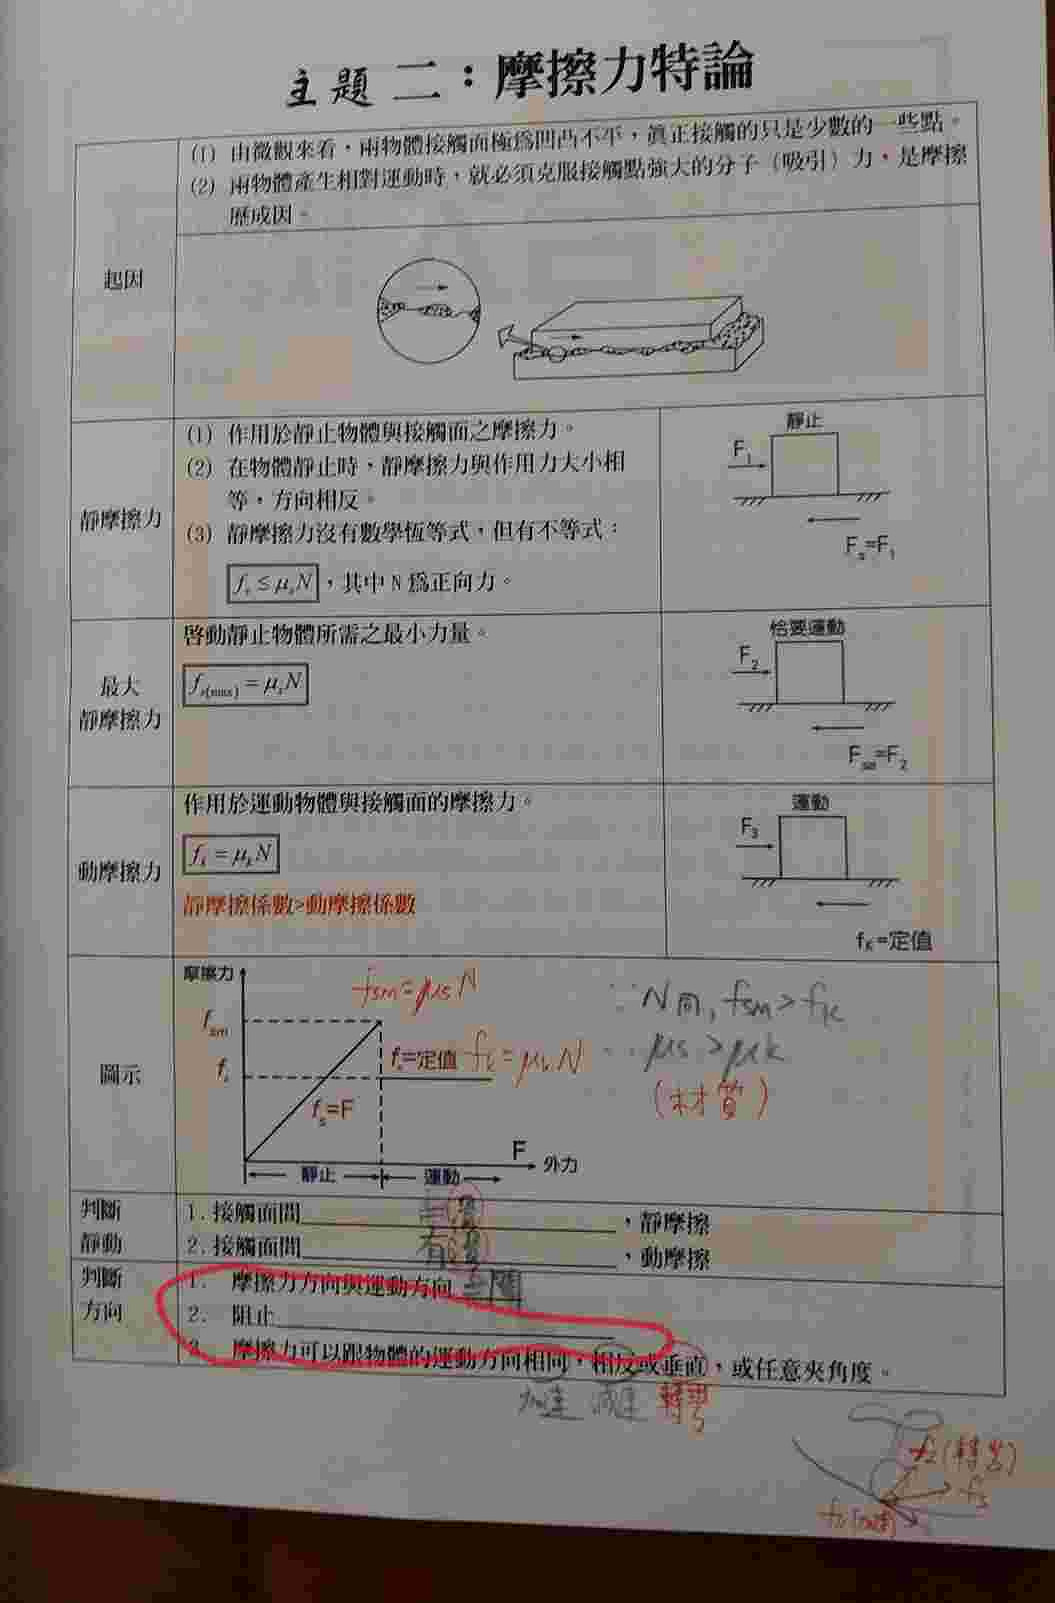 主題 二：摩擦力特論
起因
(1) 由微觀來看，兩物體接觸面極為凹凸不平，真正接觸的只是少數的一些點。
(2) 兩物體產生相對運動時，就必須克服接觸點強大的分子（吸引）力，是摩擦
成因。
靜摩擦力
(1) 作用於靜止物體與接觸面之摩擦力。
(2) 在物體靜止時，靜摩擦力與作用力大小相
等，方向相反。
(3) 靜摩擦力沒有數學恆等式，但有不等式：
fs ≤ μsN，其中 N 為正向力。
靜止
F1
Fs=F1
最大
靜摩擦力
啓動靜止物體所需之最小力量。
fs(max) = μsN
恰要運動
F2
Fsm=F2
動摩擦力
作用於運動物體與接觸面的摩擦力。
fk = μkN
靜摩擦係數>動摩擦係數
運動
F3
fK=定值
圖示
摩擦力
fsm
fsm=μsN
∵N同, fsm>fk
f=定值 fk=μkN
μs>μk
(材質)
fs=F
F 外力
靜止
運動
判斷
靜動
1. 接觸面間 ，靜摩擦
2. 接觸面間 有 ，動摩擦
判斷
方向
1. 摩擦力方向與運動方向 無關
2. 阻止
3. 摩擦力可以跟物體的運動方向相同，相反或垂直，或任意夾角度。
加速 減速 轉彎
f2(轉彎)
fs